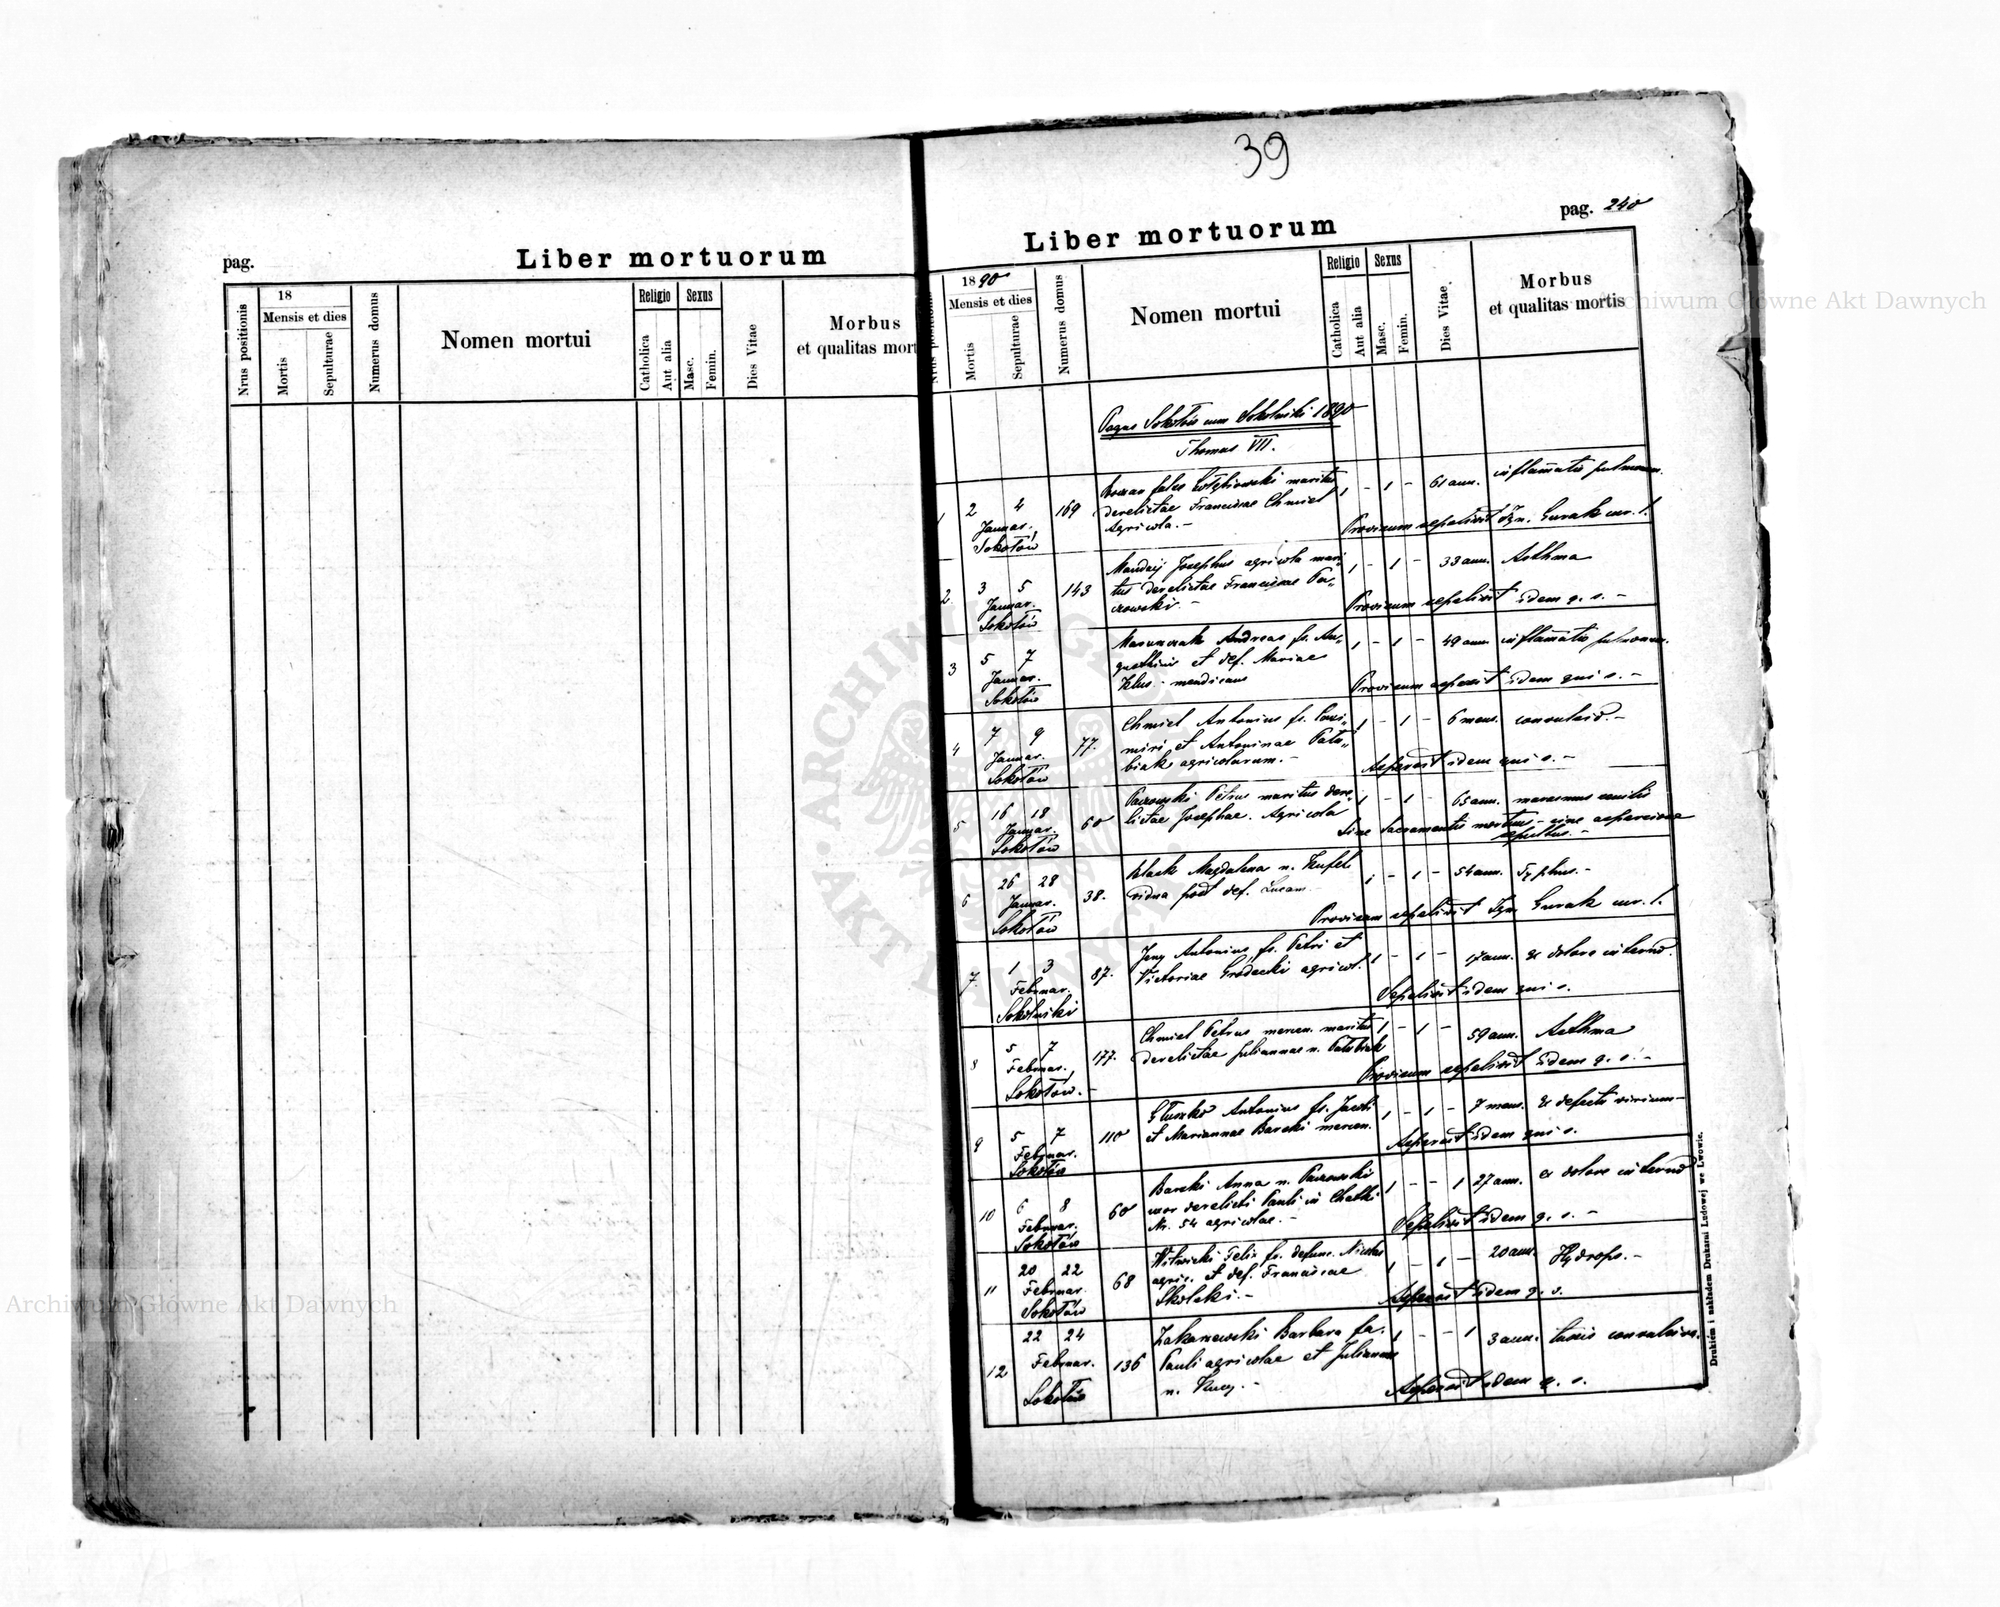 39
pag.
Liber mortuorum
Nrus positionis
18
Mensis et dies
Mortis
Sepulturae
Numerus domus
Nomen mortui
Religio
Catholica
Aut alia
Sexus
Masc.
Femin.
Dies Vitae
Morbus
et qualitas mort
pag. 240
Liber mortuorum
1890
Mensis et dies
Mortis
Sepulturae
Numerus domus
Nomen mortui
Religio
Catholica
Aut alia
Sexus
Masc.
Femin.
Dies Vitae
Morbus
et qualitas mortis
Pagus Sokołów cum Sokolniki 1890
Thomus VII.
1 2 4 Januar. Sokołów 169
maritus
derelictae Franciscae Chmiel
Agricola. –
1 – 1 – 61 ann. inflamatio pulmonum.
Provisum sepelivit Ign. Gurak cur. l.
2 3 5 Januar. Sokołów 143
Josephus agricola mari-
tus derelictae Franciscae Pa-
czowski –
1 – 1 – 33 ann. Asthma
Provisum sepelivit idem q. s. –
3 5 7 Januar. Sokołów
Andreas fs. Au-
gustini et def. Mariae
Klus. – mendicans
1 – 1 – 49 ann. inflamatio pulmonum.
Provisum aspersit idem qui s. –
4 7 9 Januar. Sokołów 77.
Chmiel Antonius fs. Casi-
miri et Antoninae Patu-
biak agricolarum. –
1 – 1 – 6 mens. convulsio. –
Aspersit idem qui s. –
5 16 18 Januar. Sokołów 60
Paczowski Petrus maritus dere-
lictae Josephae. Agricola
1 – 1 – 65 ann. marasmus senilis
Sine Sacramentis mortuus – sine aspersione
sepultus. –
6 26 28 Januar. Sokołów 38.
Magdalena n. Kufel
vidua post def. Lucam
1 – 1 – 54 ann. Typhus. –
Provisum sepelivit Ign. Gurak cur. l.
7. 1 3 Februar. Sokolniki 87.
Antonius fs. Petri et
Victoriae Grodecki agricol.
1 – 1 – ex dolore interno.
Sepelivit idem qui s.
8 5 7 Februar. Sokołów. – 177.
Chmiel Petrus mercen. maritus
derelictae Juliannae n. Patubiak
1 – 1 – 59 ann. Asthma
Provisum sepelivit idem q. s. –
9 5 7 Februar. Sokołów 110
Głuszko Antonius fs. Jacobi
et Mariannae Barski mercen.
1 – 1 – 7 mens. Ex defectu virium –
Aspersit idem qui s.
10 6 8 Februar. Sokołów 60
Barski Anna n. Paczowski
uxor derelicti Pauli in Chatki
Nr. 54 agricolae. –
1 – – 1 27 ann. ex dolore interno
Sepelivit idem q. s. –
11 20 22 Februar. Sokołów 68
Witwicki Felix fs. defunc. Nicolai
agric. et def. Franciscae
Skolski. –
1 – 1 – 20 ann. Hydrops. –
Aspersit idem q. s.
12 22 24 Februar. Sokołów 136
Zakrzewski Barbara fa.
Pauli agricolae et Juliannae
n. Kucy. –
1 – – 1 3 ann. tussis convulsiva.
Aspersit idem q. s.
Drukiem i nakładem Drukarni Ludowej we Lwowie.
Archiwum Główne Akt Dawnych
Archiwum Główne Akt Dawnych
ARCHIWUM GŁÓWNE AKT DAWNYCH